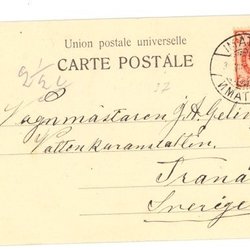 Union postale universelle
CARTE POSTALE
2½ 2
Vagnmästaren J. A.
Vattenkuranstalten.
Tranå
Sverige
ИМАТ